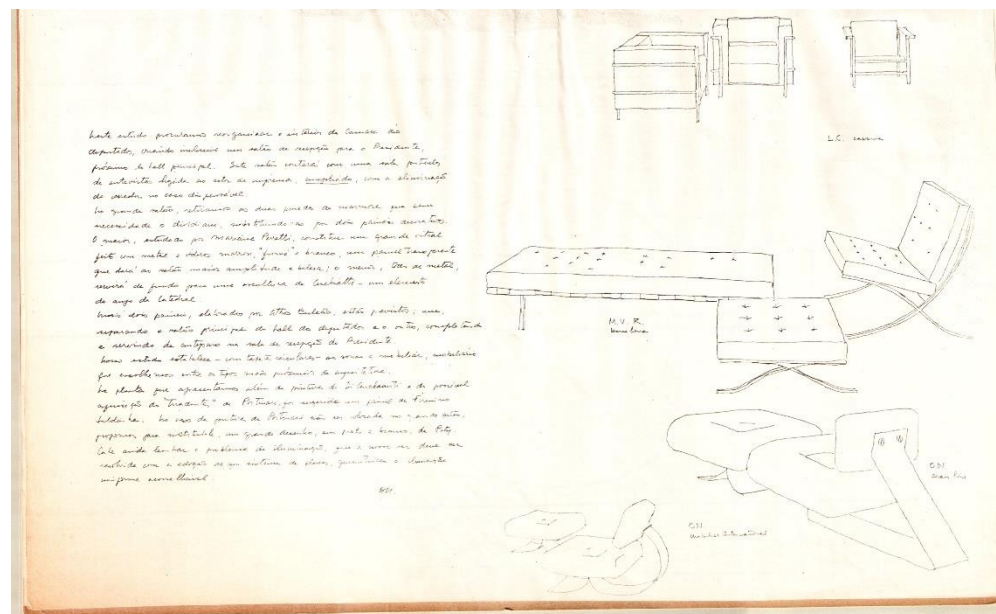 Neste estudo procuramos reorganizar o interior da Camara dos
deputados, criando inclusive um salão de recepção para o Presidente,
próximo do hall principal. Este salão contará com uma sala
de entrevistas ligada ao setor de imprensa, ampliada, com a eliminação
do corredor no caso dispensável.
No grande salão, retiramos as duas paredes de marmore que sem
necessidade o dividiam, substituindo-as por dois painéis decorativos.
O maior, estudado por Marianne Peretti, constitue um grande vitral
feito com metal e vidros marron, "fumée" e branco, um painel transparente
que dará ao salão maior amplitude e beleza; o menor, de metal,
servirá de fundo para uma escultura de Ceschiatti - um elemento
do anjo da Catedral.
Mais dois painéis, elaborados por Athos Bulcão, estão previstos; um,
separando o salão principal do hall dos deputados e o outro, completando
e servindo de na sala de recepção do Presidente.
Nosso estudo estabelece - com tapetes circulares - as zonas a mobiliar, mobiliário
que escolhemos entre os tipos mais próximos da arquitetura.
Na planta que apresentamos além da pintura de Di Cavalcanti e da possível
aquisição do "Tiradentes" de Portinari, foi sugerido um painel de Firmino
Saldanha. No caso da pintura de Portinari não ser no grande salão,
propomos para substituí-la, um grande desenho, em preto e branco, de Poty.
Cabe ainda lembrar o problema da iluminação, que a nosso ver deve ser
resolvido com a adoção de um sistema de que a iluminação
uniforme aconselhável.
L.C.
M.V.R.
O.N.
O.N.